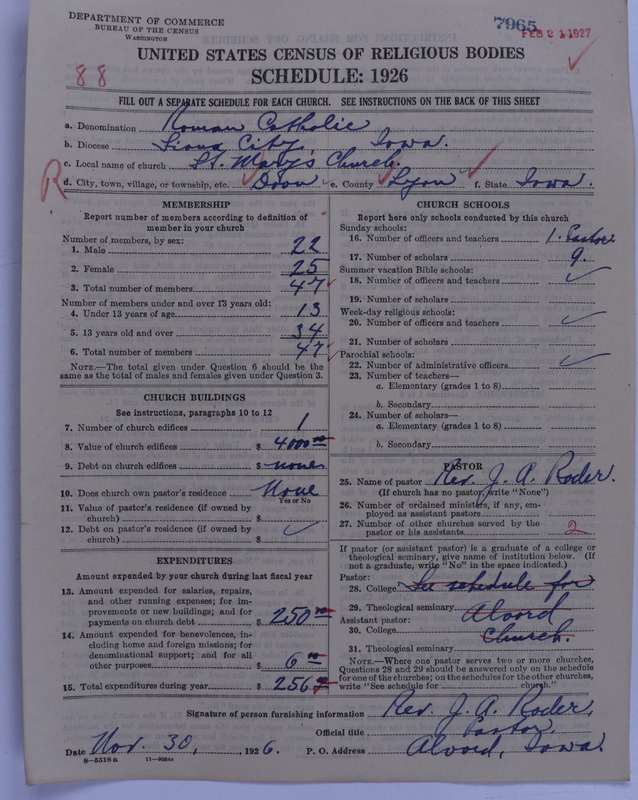 DEPARTMENT OF COMMERCE
BUREAU OF THE CENSUS
WASHINGTON
7965
FEB 21 1927
UNITED STATES CENSUS OF RELIGIOUS BODIES
SCHEDULE: 1926
88
FILL OUT A SEPARATE SCHEDULE FOR EACH CHURCH. SEE INSTRUCTIONS ON THE BACK OF THIS SHEET
a. Denomination Roman Catholic
b. Diocese Sioux City, Iowa.
c. Local name of church St. Mary's Church.
R d. City, town, village, or township, etc. Doon e. County Lyon f. State Iowa.
MEMBERSHIP
Report number of members according to definition of
member in your church
Number of members, by sex:
1. Male 22
2. Female 25
3. Total number of members 47
Number of members under and over 13 years old:
4. Under 13 years of age 13
5. 13 years old and over 34
6. Total number of members 47
NOTE.—The total given under Question 6 should be
same as the total of males and females given under Question 3.
CHURCH BUILDINGS
See instructions, paragraphs 10 to 12
7. Number of church edifices 1
8. Value of church edifices $ 4000 00
9. Debt on church edifices $ none
10. Does church own pastor's residence None
Yes or No
11. Value of pastor's residence (if owned by
church) $
12. Debt on pastor's residence (if owned by
church) $
EXPENDITURES
Amount expended by your church during last fiscal year
13. Amount expended for salaries, repairs,
and other running expenses; for im-
provements or new buildings; and for
payments on church debt $ 250 00
14. Amount expended for benevolences, in-
cluding home and foreign missions; for
denominational support; and for all
other purposes $ 6 00
15. Total expenditures during year $ 256
CHURCH SCHOOLS
Report here only schools conducted by this church
Sunday schools:
16. Number of officers and teachers 1. Pastor
17. Number of scholars 9.
Summer vacation Bible schools:
18. Number of officers and teachers
19. Number of scholars
Week-day religious schools:
20. Number of officers and teachers
21. Number of scholars
Parochial schools:
22. Number of administrative officers
23. Number of teachers—
a. Elementary (grades 1 to 8)
b. Secondary
24. Number of scholars—
a. Elementary (grades 1 to 8)
b. Secondary
PASTOR
25. Name of pastor Rev. J. A. Roder.
(If church has no pastor, write "None")
26. Number of ordained ministers, if any, em-
ployed as assistant pastors
27. Number of other churches served by the
pastor or his assistants 2
If pastor (or assistant pastor) is a graduate of a college or
theological seminary, give name of institution below. (If
not a graduate, write "No" in the space indicated.)
Pastor:
28. College See schedule for
29. Theological seminary Alvord
Assistant pastor:
30. College Church.
31. Theological seminary
NOTE.—Where one pastor serves two or more churches,
Questions 28 and 29 should be answered only on the schedule
for one of the churches; on the schedules for the other churches,
write "See schedule for church."
Signature of person furnishing information Rev. J. A. Roder.
Official title Pastor.
Date Nov. 30, , 1926. P. O. Address Alvord, Iowa.